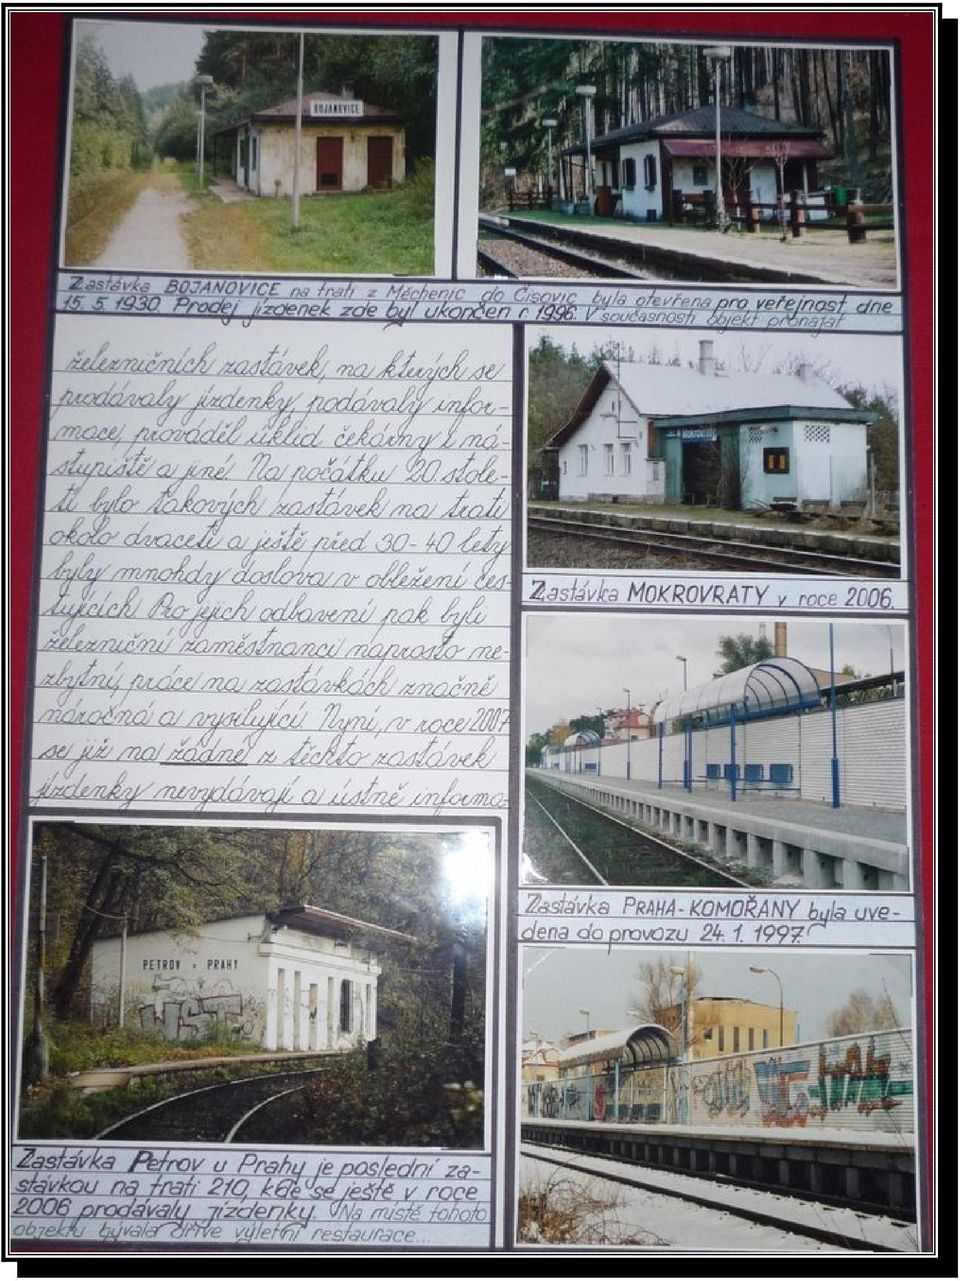 BOJANOVICE
Zastávka BOJANOVICE na trati z Měchenic do Čisovic byla otevřena pro veřejnost dne
15. 5. 1930. Prodej jízdenek zde byl ukončen r. 1996. V současnosti objekt pronajat
železničních zastávek, na kterých se
prodávaly jízdenky, podávaly infor-
mace, prováděl úklid čekárny i ná-
stupiště a jiné. Na počátku 20. stole-
tí bylo takových zastávek na trati
okolo dvaceti a ještě před 30-40 lety
byly mnohdy doslova v obležení ces-
tujících. Pro jejich odbavení pak byli
železniční zaměstnanci naprosto ne-
zbytní, práce na zastávkách značně
náročná a vysilující. Nyní, v roce 2007
se již na žádné z těchto zastávek
jízdenky nevydávají a ústně informa-
MOKROVRATY
Zastávka MOKROVRATY v roce 2006.
Zastávka PRAHA-KOMOŘANY byla uve-
dena do provozu 24. 1. 1997.
PETROV u PRAHY
Zastávka Petrov u Prahy je poslední za-
stávkou na trati 210, kde se ještě v roce
2006 prodávaly jízdenky. Na místě tohoto
objektu bývala dříve výletní restaurace...